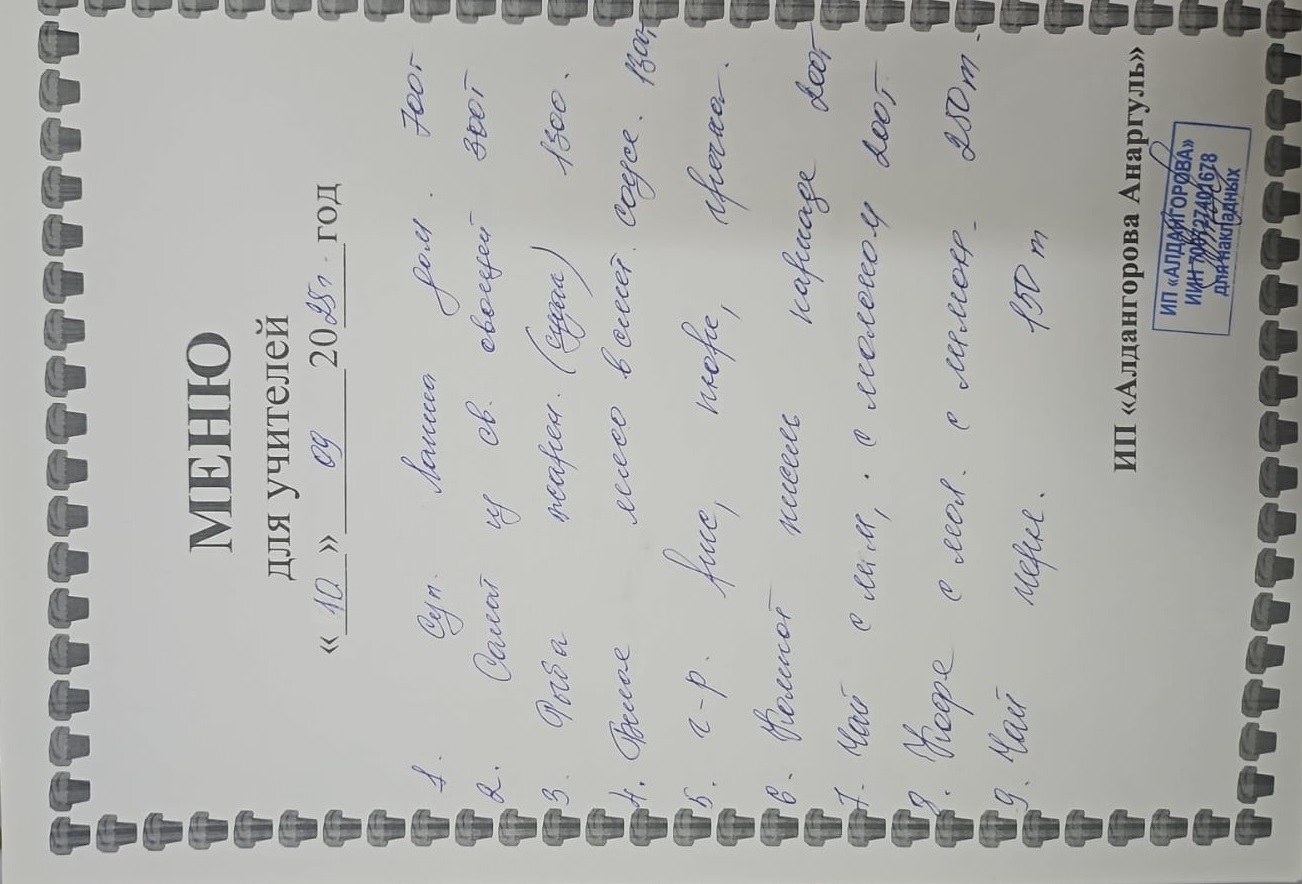 МЕНЮ
для учителей
« 10 » 09 2025г. год
1. Суп. лапша дом. 700т
2. Салат из св. овощей 300т
3. Рыба жарен. (судак) 1300.
4. Белое мясо в смет. соусе. 1300т
5. г-р. рис, пюре, гречка.
6. Компот кисель каркаде 200т
7. Чай с лим, . с молоком 200т
8. Кофе с мол. с лимон. 250т.
9. Чай черн. 150т
ИП «Алдангорова Анаргуль»
ИП «АЛДАНГОРОВА»
ИИН
для накладных